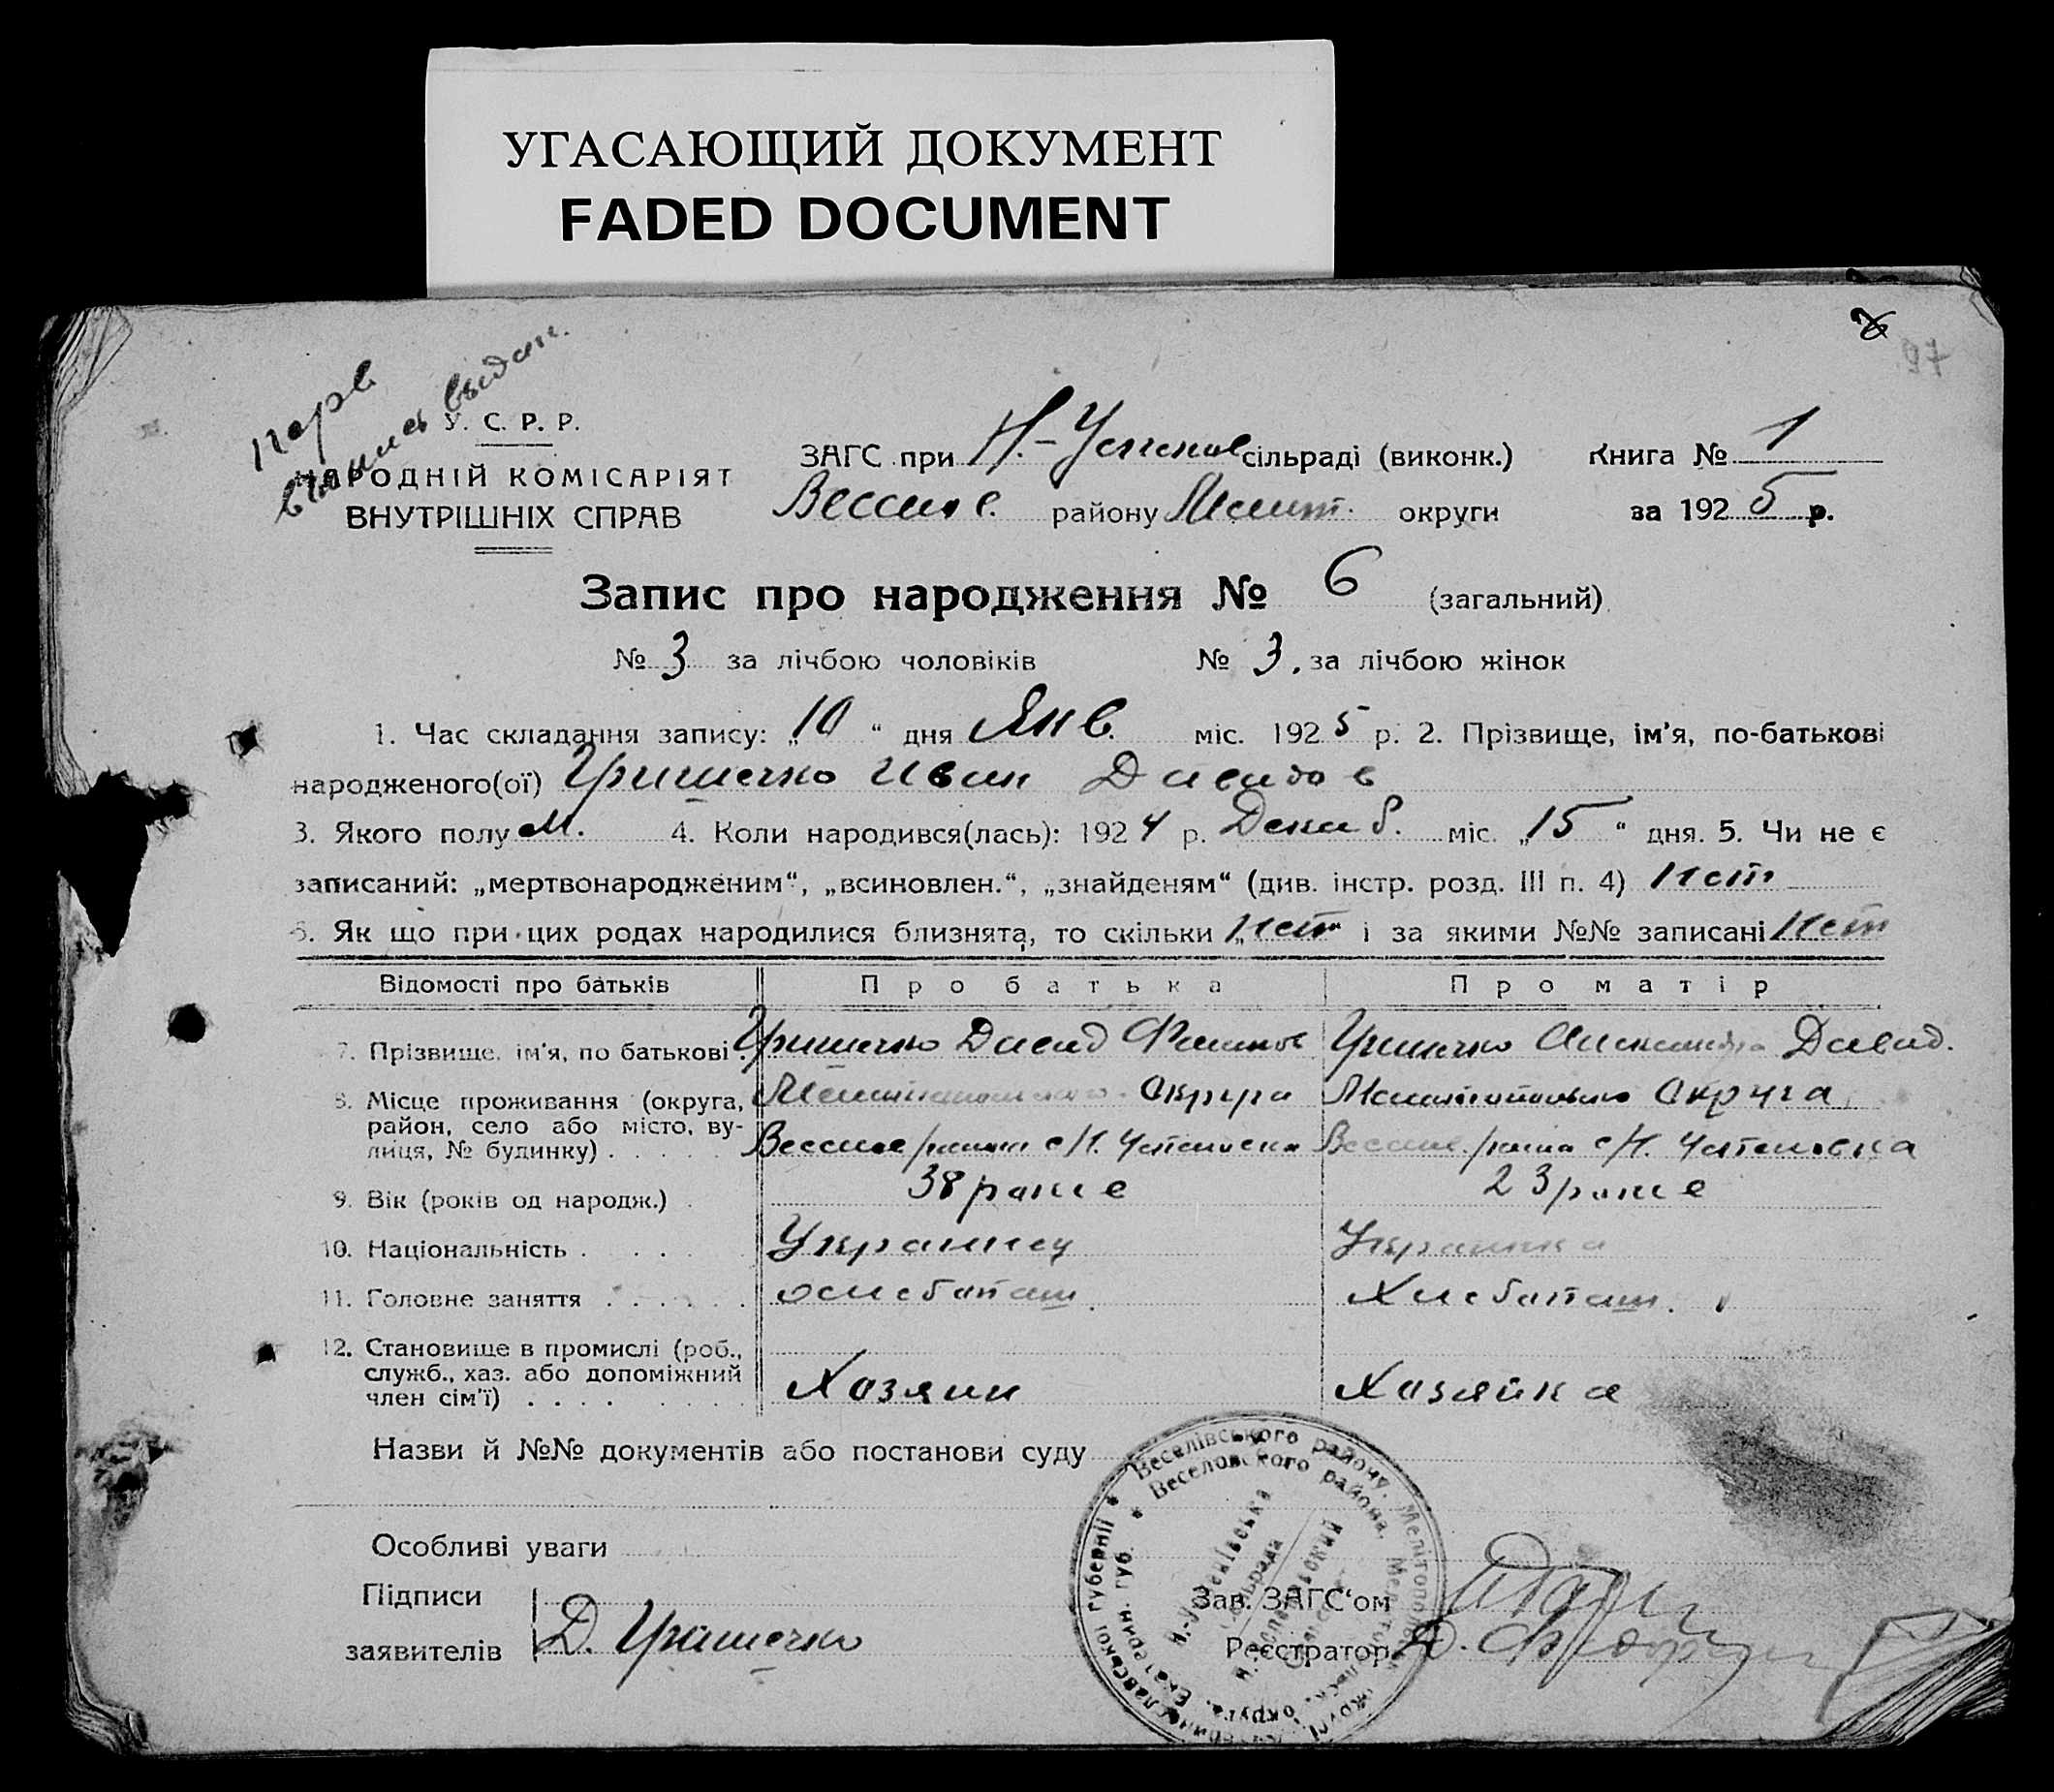 УГАСАЮЩИЙ ДОКУМЕНТ
FADED DOCUMENT
97
перв
выпись выдан.
У. С. Р. Р.
НАРОДНІЙ КОМІСАРІЯТ
ВНУТРІШНІХ СПРАВ
ЗАГС при Н.-Успенов сільраді (виконк.) Книга № 1
Веселов. району Мелит. округи за 1925 р.
Запис про народження № 6 (загальний)
№ 3 за лічбою чоловіків № 3. за лічбою жінок
1. Час складання запису: „10“ дня Янв. міс. 1925 р. 2. Прізвище, ім'я, по-батькові
народженого(ої) Гришечко Иван Давидов
3. Якого полу М. 4. Коли народився(лась): 1924 р. Декаб. міс. „15“ дня. 5. Чи не є
записаний: „мертвонародженим“, „всиновлен.“, „знайденям“ (див. інстр. розд. III п. 4) Нет
6. Як що при цих родах народилися близнята, то скільки „Нет“ і за якими №№ записані Нет
Відомості про батьків Про батька Про матір
7. Прізвище, ім'я, по батькові . Гришечко Давид Гришечко Александра Давид.
8. Місце проживання (округа, Округа Округа
район, село або місто, ву-
лиця, № будинку) . . . . .
9. Вік (років од народж.) . 38 23
10. Національність . . . . . Украинец Украинка
11. Головне заняття . . . . . . Хлебопаш. Хлебопаш.
12. Становище в промислі (роб.,
служб., хаз. або допоміжний
член сім'ї) . . . . . . . . Хазяин Хазяйка
Назви й №№ документів або постанови суду
Особливі уваги
Підписи
заявителів Д. Гришечко
Зав. ЗАГС'ом
Реєстратор
Веселівського району, Мелітопольск округи, Катеринославської губернії
Веселовского района, Мелитопольск. округа, Екатерин. губ.
Н.-Успенівська
сільрада